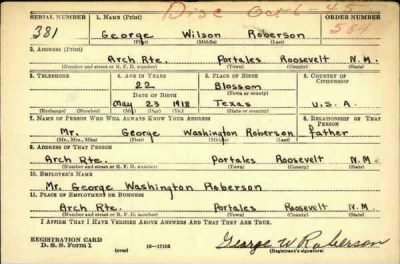 Disc Oct 6-45
SERIAL NUMBER 1. NAME (Print) ORDER NUMBER
381 George Wilson Roberson 584
(First) (Middle) (Last)
2. ADDRESS (Print)
Arch Rte. Portales Roosevelt N.M.
(Number and street or R. F. D. number) (Town) (County) (State)
3. TELEPHONE 4. AGE IN YEARS 5. PLACE OF BIRTH 6. COUNTRY OF CITIZENSHIP
22 Blossom
DATE OF BIRTH (Town or county)
May 23 1918 Texas U.S.A.
(Exchange) (Number) (Mo.) (Day) (Yr.) (State or country)
7. NAME OF PERSON WHO WILL ALWAYS KNOW YOUR ADDRESS 8. RELATIONSHIP OF THAT PERSON
Mr. George Washington Roberson father
(Mr., Mrs., Miss) (First) (Middle) (Last)
9. ADDRESS OF THAT PERSON
Arch Rte. Portales Roosevelt N.M.
(Number and street or R. F. D. number) (Town) (County) (State)
10. EMPLOYER'S NAME
Mr. George Washington Roberson
11. PLACE OF EMPLOYMENT OR BUSINESS
Arch Rte. Portales Roosevelt N.M.
(Number and street or R. F. D. number) (Town) (County) (State)
I AFFIRM THAT I HAVE VERIFIED ABOVE ANSWERS AND THAT THEY ARE TRUE.
REGISTRATION CARD
D. S. S. Form 1 (over) 16-17105 George W. Roberson
(Registrant's signature)